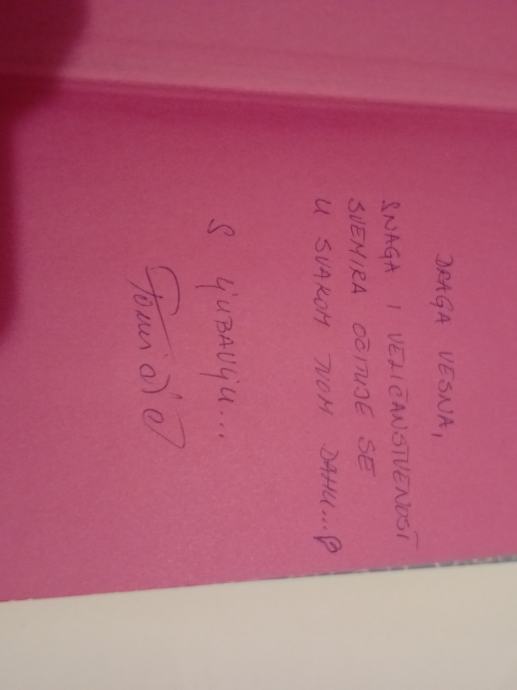 DRAGA VESNA,
SNAGA I VELIČANSTVENOST
SVEMIRA OČITUJE SE
U SVAKOM TVOM DAHU...
S LJUBAVLJU...